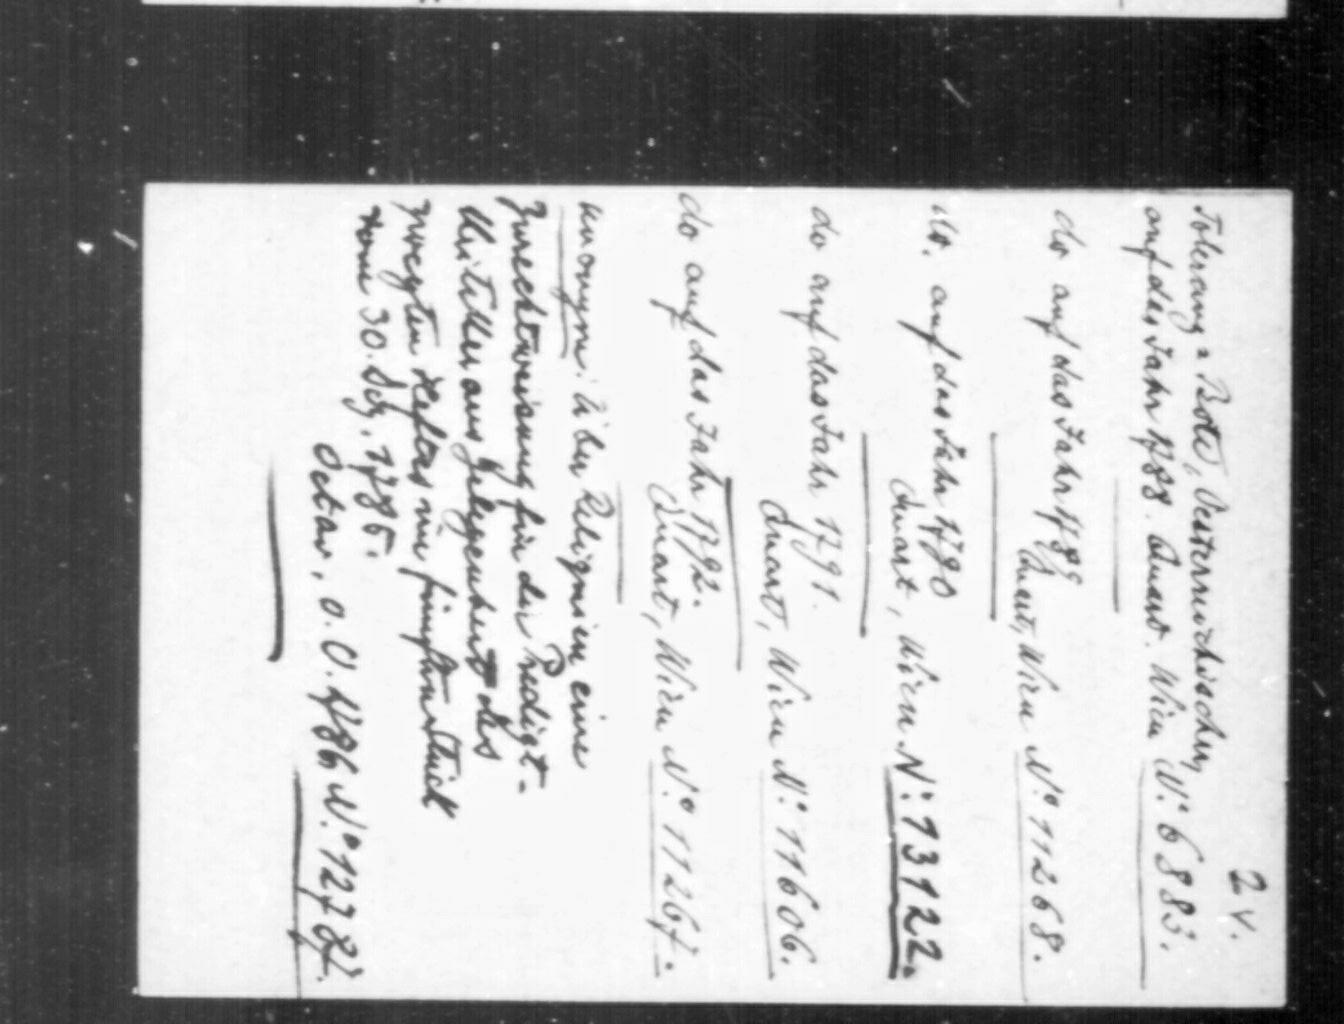 2 v.
Toleranz-Bote, Oesterreichischer,
auf das Jahr 1788. Quart. Wien N.° 6883.
do auf das Jahr 1789
Quart, Wien N.° 11268.
do. auf das Jahr 1790
Quart, Wien N.° 13122.
do auf das Jahr 1791.
Quart, Wien N.° 11606.
do auf das Jahr 1792.
Quart, Wien N.° 11267.
anonym: über Religion eine
Zurechtweisung für die Predigt-
Kritiker aus Gelegenheit des
zweyten Heftes
vom 30. Sep. 1785.
Octav, o. O. 1786 N.° 12787.